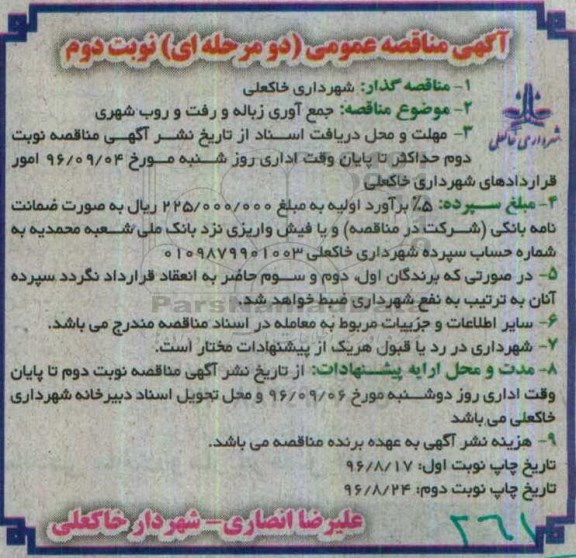 آگهی مناقصه عمومی (دو مرحله ای) نوبت دوم
۱- مناقصه گذار: شهرداری خاکعلی
۲- موضوع مناقصه: جمع آوری زباله و رفت و روب شهری
۳- مهلت و محل دریافت اسناد از تاریخ نشر آگهی مناقصه نوبت
دوم حداکثر تا پایان وقت اداری روز شنبه مورخ ۹۶/۰۹/۰۴ امور
قراردادهای شهرداری خاکعلی
شهرداری خاکعلی
۴- مبلغ سپرده: ۵٪ برآورد اولیه به مبلغ ۲۲۵/۰۰۰/۰۰۰ ریال به صورت ضمانت
نامه بانکی (شرکت در مناقصه) و یا فیش واریزی نزد بانک ملی شعبه محمدیه به
شماره حساب سپرده شهرداری خاکعلی ۰۱۰۹۸۷۹۹۰۱۰۰۳
۵- در صورتی که برندگان اول، دوم و سوم حاضر به انعقاد قرارداد نگردد سپرده
آنان به ترتیب به نفع شهرداری ضبط خواهد شد.
ParsNamadData
۶- سایر اطلاعات و جزییات مربوط به معامله در اسناد مناقصه مندرج می باشد.
۷- شهرداری در رد یا قبول هریک از پیشنهادات مختار است.
۸- مدت و محل ارایه پیشنهادات: از تاریخ نشر آگهی مناقصه نوبت دوم تا پایان
وقت اداری روز دوشنبه مورخ ۹۶/۰۹/۰۶ و محل تحویل اسناد دبیرخانه شهرداری
خاکعلی می باشد
۹- هزینه نشر آگهی به عهده برنده مناقصه می باشد.
تاریخ چاپ نوبت اول: ۹۶/۸/۱۷
تاریخ چاپ نوبت دوم: ۹۶/۸/۲۴
علیرضا انصاری- شهردار خاکعلی
۲۶۱